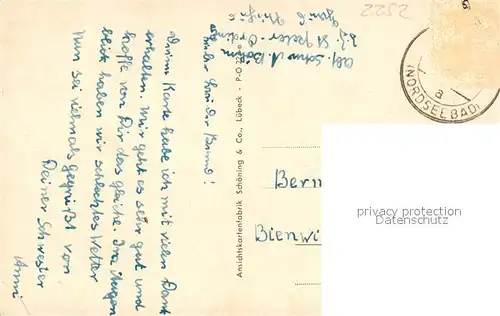 2522
Abs. Schw. A. Böhm
z.Zt. St. Peter-Ording
Mein lieber Bruno!
Deine Karte habe ich mit vielen Dank
erhalten. Mir geht es sehr gut und
hoffe von Dir das gleiche. Im Augen
blick haben wir schlechtes Wetter
Nun sei vielmals gegrüßt von
Deiner Schwester
Anni
Ansichtskartenfabrik Schöning & Co., Lübeck - P-O
(NORDSEEBAD)
a
Bern
Bienwi
privacy protection
Datenschutz